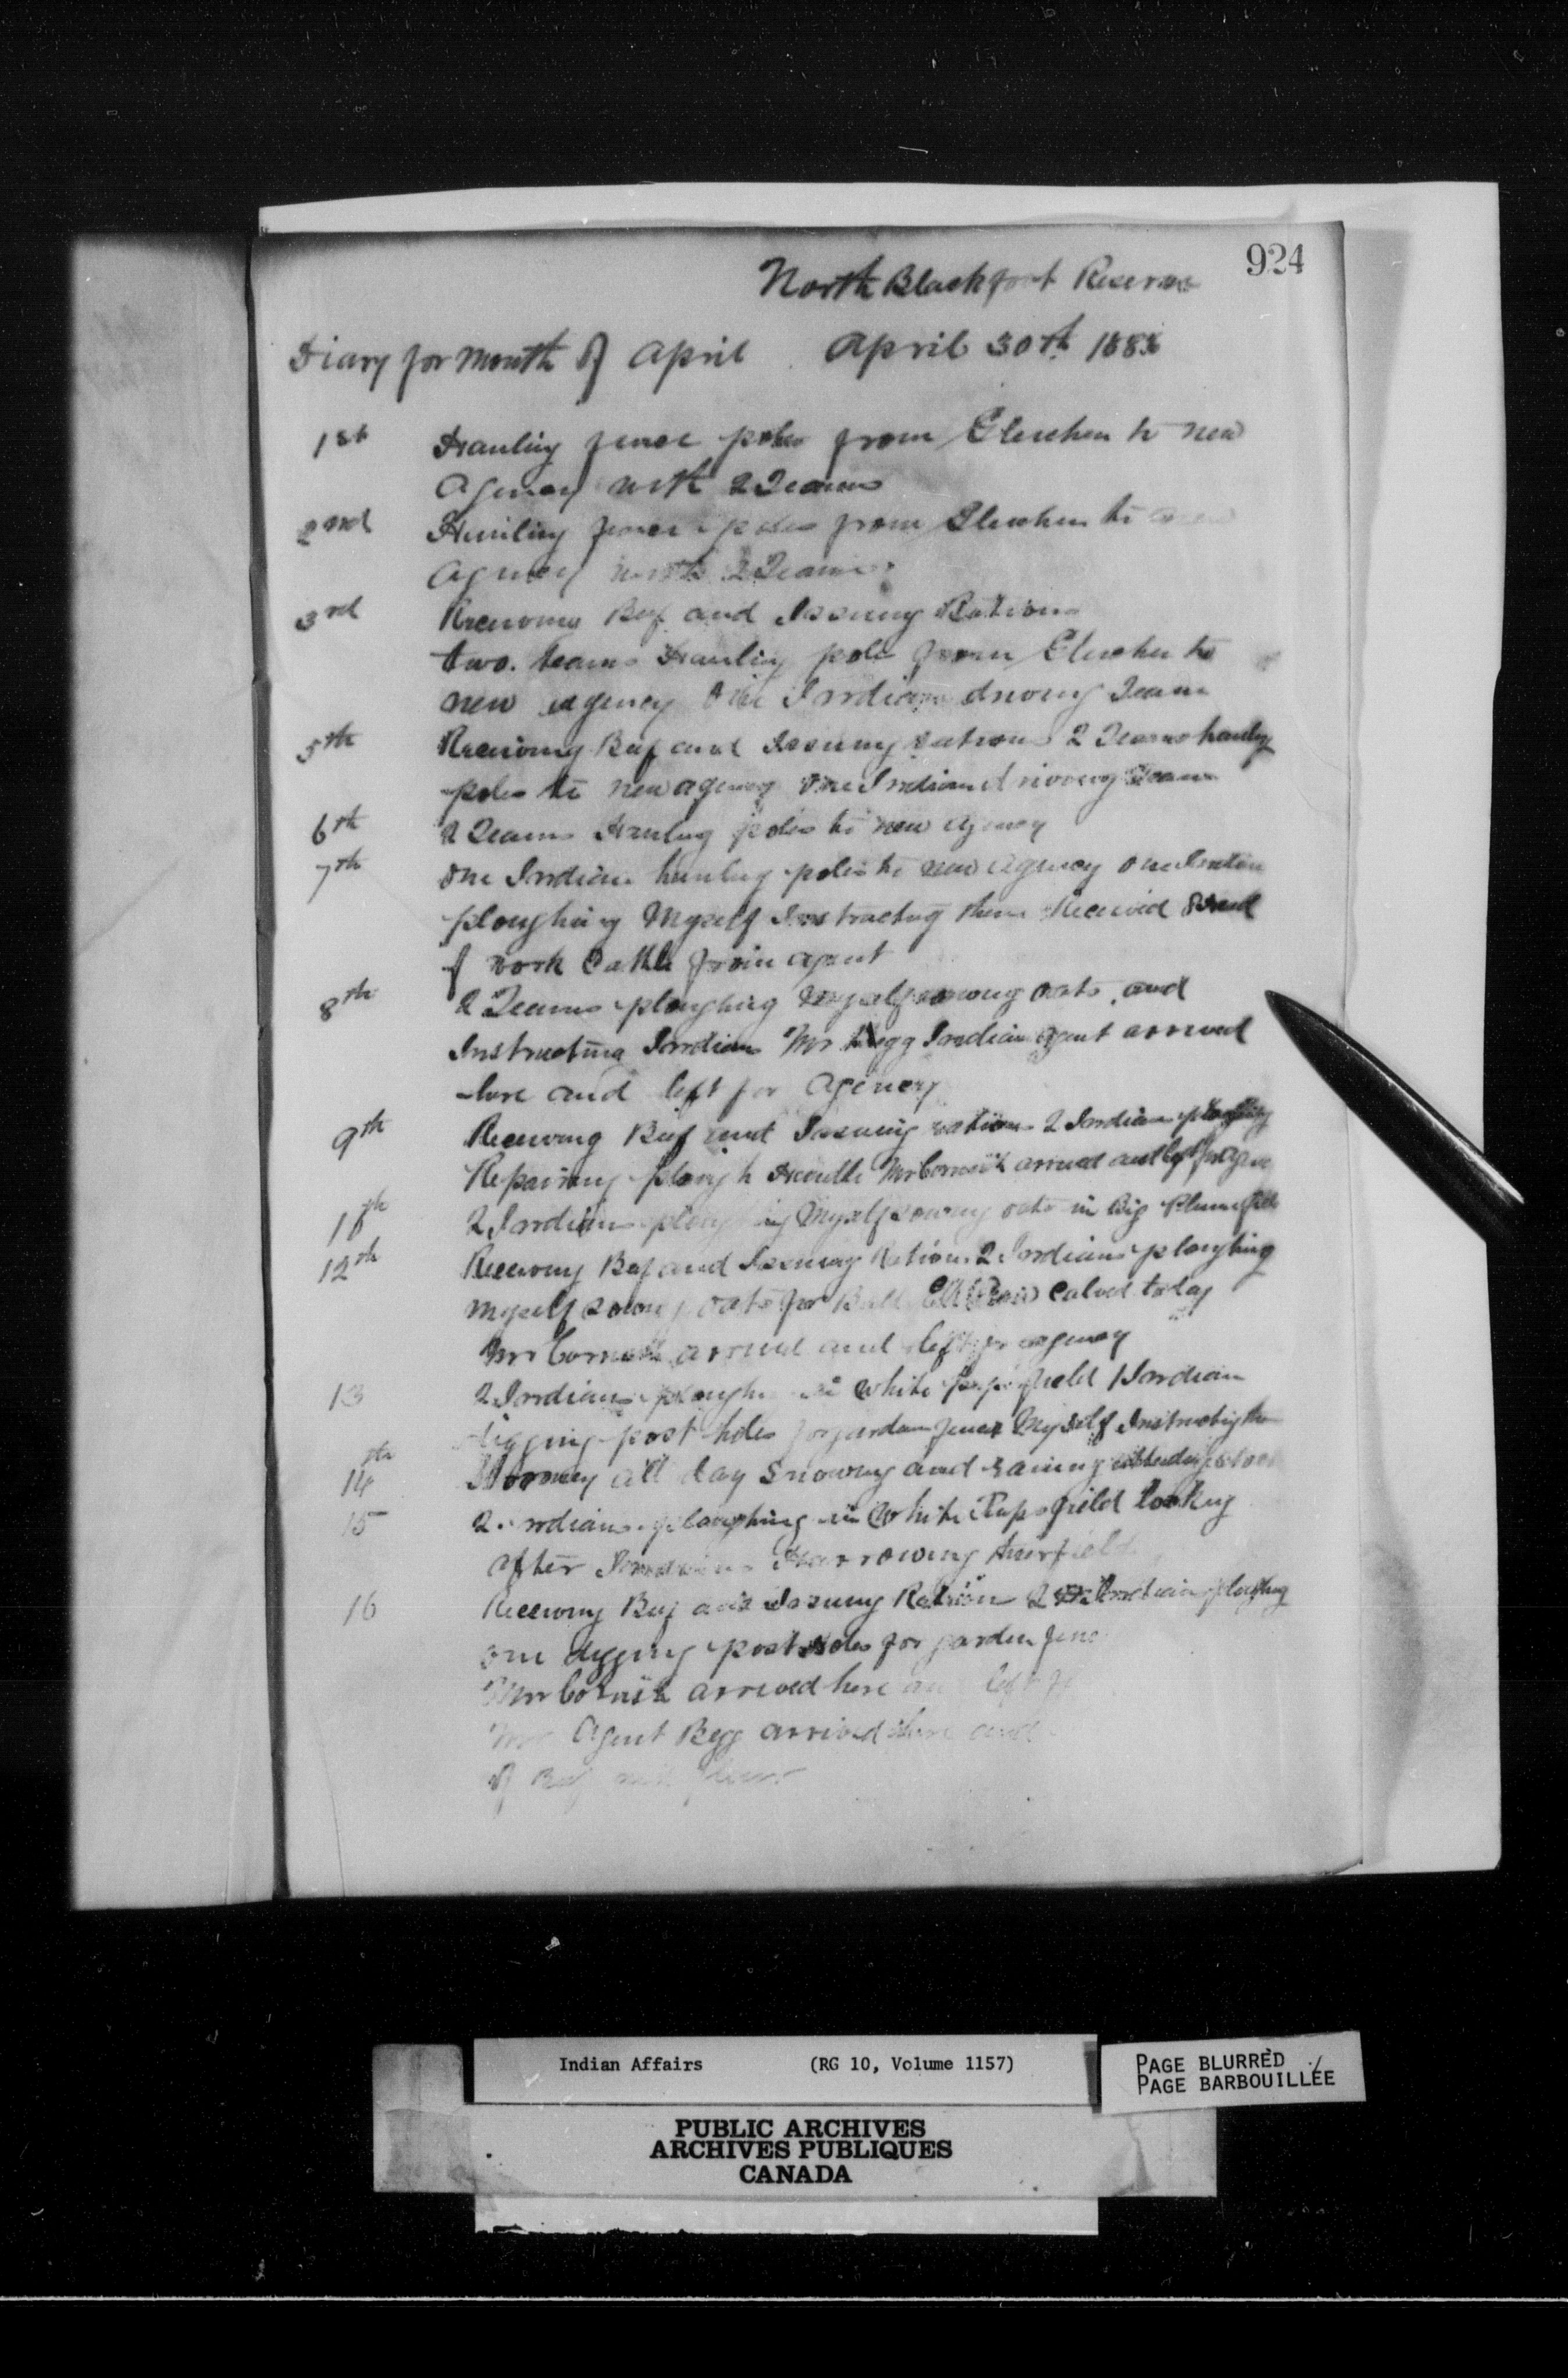 924
North Blackfoot Reserve
Diary for Month of April April 30th 188
1st Hauling fence poles from Gleichen to new
Agency with 2 Teams
2nd Hauling fence poles from Gleichen to new
Agency with 2 Teams
3rd Receiving Beef and Issuing Rations
two teams Hauling poles from Gleichen to
new agency One Indian driving Team
5th Receiving Beef and Issuing rations 2 Teams hauling
poles to new agency One Indian driving Team
6th 2 Teams Hauling poles to new agency
7th One Indian hauling poles to new agency one Indian
ploughing Myself Instructing them Received 8 head
of work Cattle from agent
8th 2 Teams ploughing Myself sowing oats and
Instructing Indians Mr Begg Indian agent arrived
here and left for Agency
9th Receiving Beef and Issuing rations 2 Indians ploughing
Repairing plough Handle Mr Cornish arrived and left for Agency
10th 2 Indians ploughing Myself sowing oats in Big Plume field
12th Receiving Beef and Issuing Rations 2 Indians ploughing
Myself sowing oats for Bull Cow Calved today
Mr Cornish arrived and left for agency
13 2 Indians ploughing in White field 1 Indian
digging post holes for garden fence Myself Instructing them
14th Stormy all day Snowing and raining attending stock
15 2 Indians ploughing in White field looking
after Indians Harrowing their field
16 Receiving Beef and Issuing Rations 2 Indians ploughing
one digging post holes for garden fence
Mr Cornish arrived here and left
Mr Agent Begg arrived here and
of Beef
Indian Affairs (RG 10, Volume 1157)
PAGE BLURRED
PAGE BARBOUILLÉE
PUBLIC ARCHIVES
ARCHIVES PUBLIQUES
CANADA